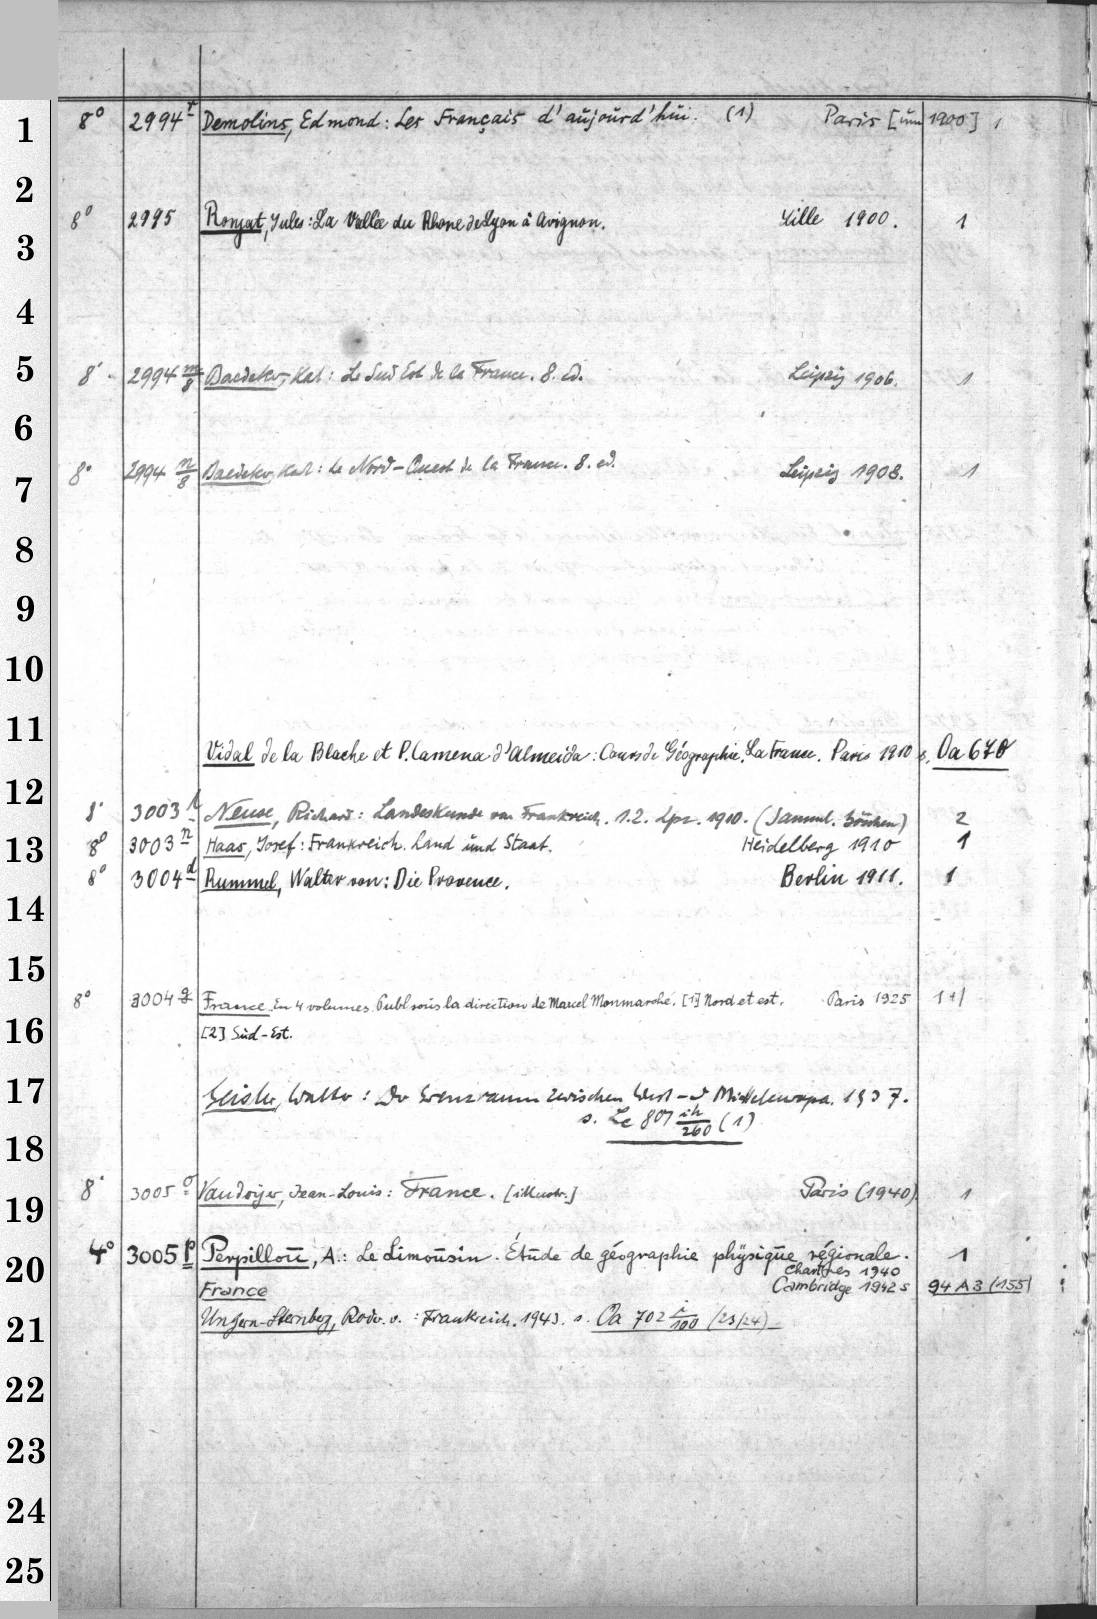 1
8° 2994 r Demolins, Edmond: Les Français d'aujourd'hui. (1) Paris [um 1900] 1
2
8° 2995 Ronjat, Jules: La Vallée du Rhone de Lyon à Avignon. Lille 1900. 1
3
4
5
8° 2994 m/8 Baedeker, Karl: Le Sud Est de la France. 8. ed. Leipzig 1906. 1
6
8° 2994 n/8 Baedeker, Karl: Le Nord-Ouest de la France. 8. ed. Leipzig 1908. 1
7
8
9
10
11
Vidal de la Blache et P. Camena d'Almeida: Cours de Géographie. La France. Paris 1910 s. Oa 670
12
8° 3003 Neuse, Richard: Landeskunde von Frankreich. 1.2. Lpz. 1910. (Samml. Göschen) 2
13
8° 3003 n Haas, Josef: Frankreich. Land und Staat. Heidelberg 1910 1
8° 3004 d Rummel, Walter von: Die Provence. Berlin 1911. 1
14
15
8° 3004 g France. En 4 volumes. Publ sous la direction de Marcel Monmarché. [1] Nord et est. Paris 1925 1+1
16
[2] Sud-Est.
17
Geisler, Walter: Der Grenzraum zwischen West- u Mitteleuropa. 1937.
s. Le 807 ih/260 (1)
18
8° 3005 o Vaudoyer, Jean-Louis: France. [illustr.] Paris (1940) 1
19
4° 3005 p Perpillou, A.: Le Limousin. Étude de géographie physique régionale. 1
20
Chartres 1940
France Cambridge 1942 s 94 A 3 (155)
21
Ungern-Sternberg, Rodr. v.: Frankreich. 1943. s. Oa 702 r/100 (23/24)
22
23
24
25